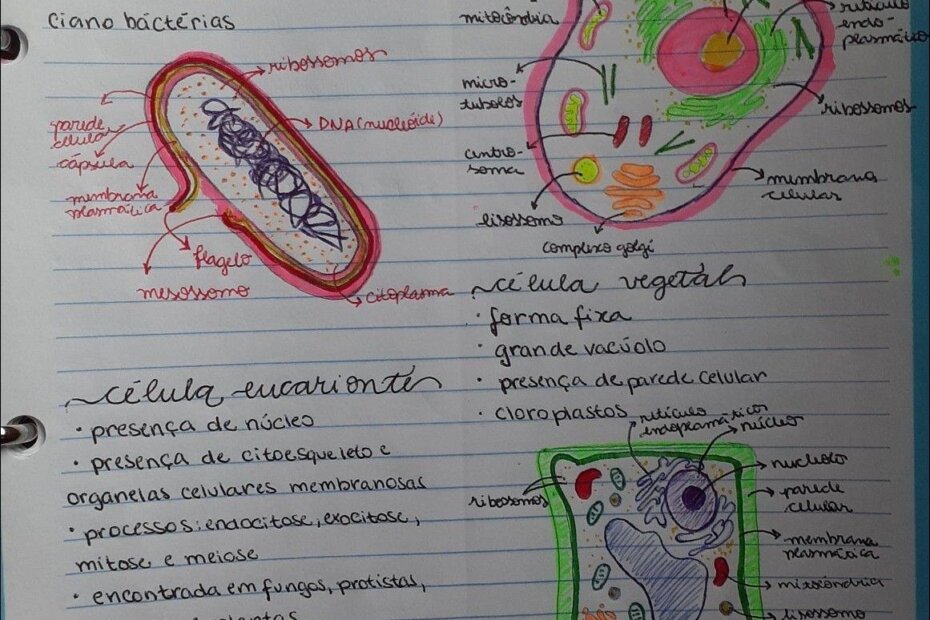 ciano bactérias
ribossomos
parede
celula
DNA (nucleóide)
cápsula
membrana
plasmática
flagelo
mesossomo
citoplasma
célula eucarionte
• presença de núcleo
• presença de citoesqueleto e
organelas celulares membranosas
• processos: endocitose, exocitose,
mitose e meiose
• encontrada em fungos, protistas,
mitocôndria
retículo
endo-
plasmático
micro-
tubolos
ribossomos
centro-
soma
membrana
celular
lisossomo
complexo golgi
célula vegetal
• forma fixa
• grande vacúolo
• presença de parede celular
• cloroplastos
retículo
endoplasmático
núcleo
nucleolo
ribosomos
parede
celular
membrana
plasmática
mitocôndria
lisossomo